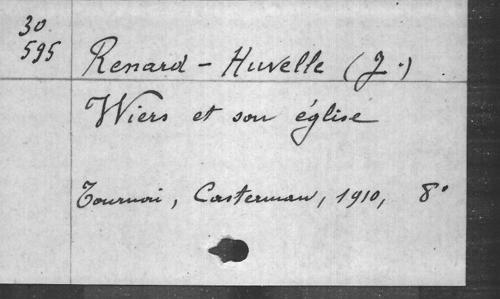 30
595
Renard - Huvelle (J.)
Wiers et son église
Tournai, Casterman, 1910, 8°